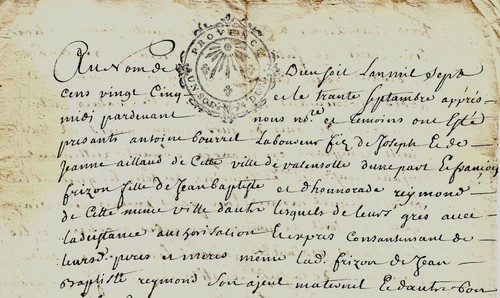 PROVENCE
Au Nom de Dieu soit Lan mil sept
cens vingt Cinq et le trante Septambre apprés
midi pardevant nous no.re et temoins ont Esté
presants antoine bourrel Laboureur fiz de Joseph Et de
Jeanne aillaud de Cette ville de valensolle dune part Et françoise
frizon fille de Jean baptiste et d'honnorade reymond
de Cette mime ville d'autre lesquels de leurs grés avec
ladcistance authorisation Et exprés Consantemant de
leursd. peres et meres même lad. frizon de Jean
Baptiste reymond son ajeul maternel Et dautre